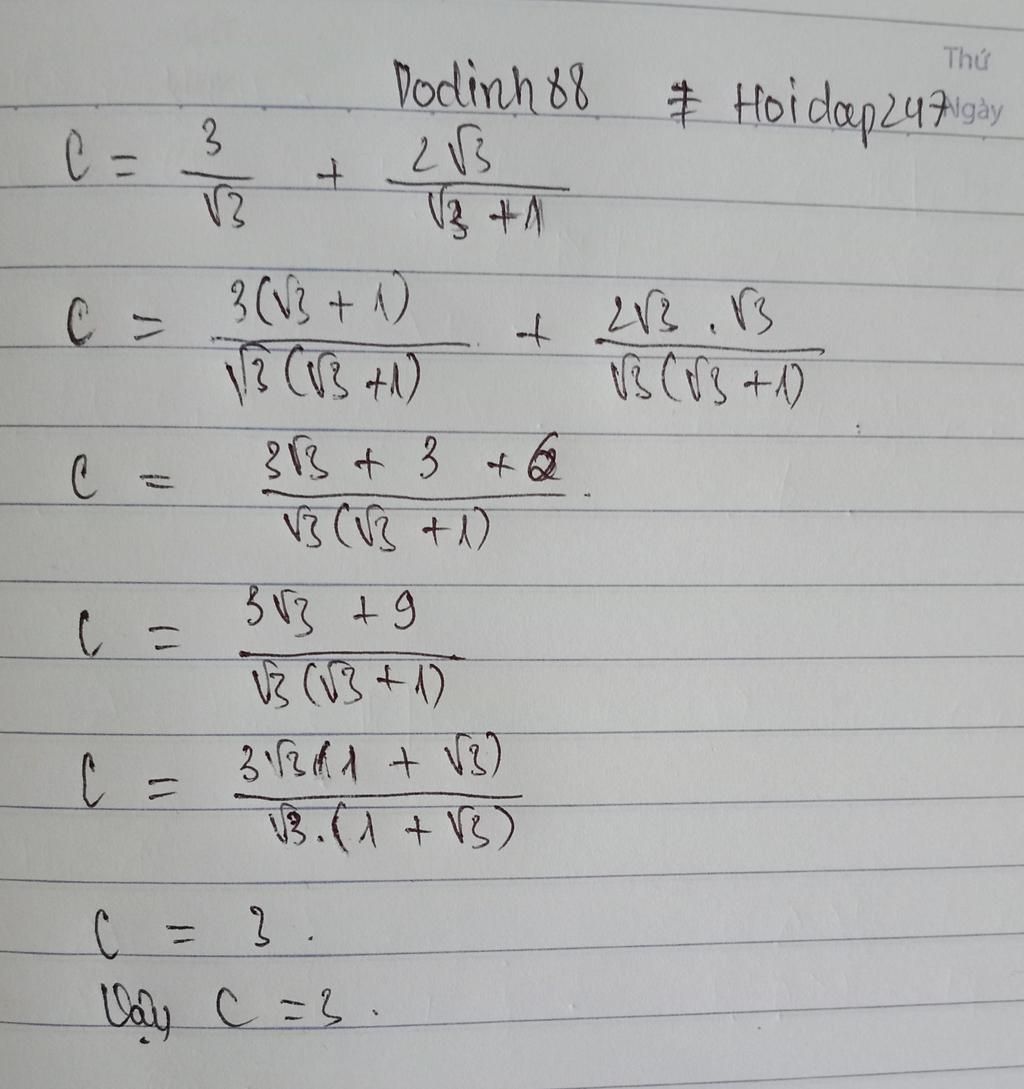 Thứ
Dodinh88 # Hoidap247 Ngày
C = 3/√3 + 2√3/(√3 + 1)
C = 3(√3 + 1)/(√3(√3 + 1)) + 2√3 . √3/(√3(√3 + 1))
C = (3√3 + 3 + 6)/(√3(√3 + 1))
C = (3√3 + 9)/(√3(√3 + 1))
C = 3√3(1 + √3)/(√3.(1 + √3))
C = 3.
Vậy C = 3.